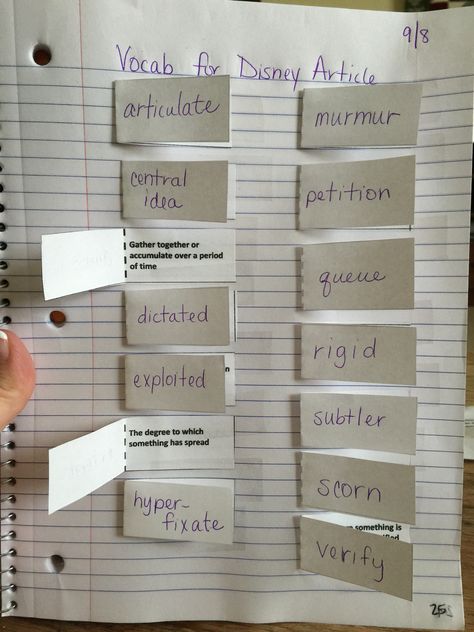 9/8
Vocab for Disney Article
articulate
central
idea
Gather together or
accumulate over a period
of time
dictated
exploited
The degree to which
something has spread
hyper-
fixate
murmur
petition
queue
rigid
subtler
scorn
something is
verify
25